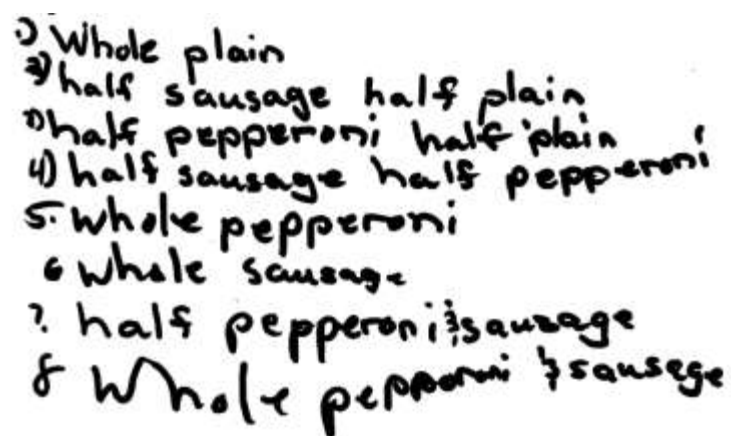 1) Whole plain
2) half sausage half plain
3) half pepperoni half plain
4) half sausage half pepperoni
5. Whole pepperoni
6 whole sausage
7. half pepperoni & sausage
8 Whole pepperoni & sausege